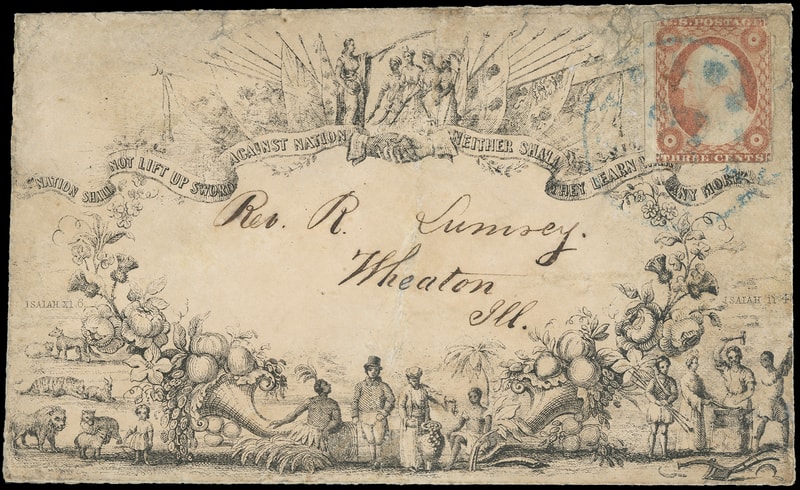 U.S. POSTAGE
THREE CENTS
NATION SHALL NOT LIFT UP SWORD AGAINST NATION NEITHER SHALL THEY LEARN WAR ANY MORE
Rev. R. Lumsey.
Wheaton
Ill.
ISAIAH XI. 6.
ISAIAH II. 4